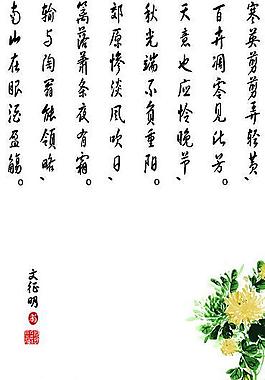 寒英剪剪弄轻黄、
百卉凋零见此芳。
天意也应怜晚节、
秋光端不负重阳。
郊原惨淡风吹日、
篱落萧条夜有霜。
输与陶翁能领略、
南山在眼酒盈觞。
文征明